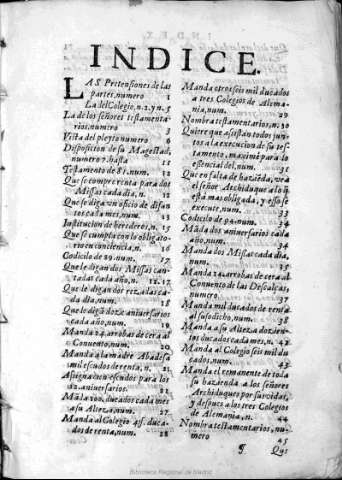 INDICE.
LAS Pretensiones de las
partes, numero
La del Colegio, n. 2. y n. 5
La de los señores testamenta-
rios, numero 3
Vista del pleyto numero 6
Disposicion de su Magestad,
numero 7. hasta 11
Testamento de 81. num. 12
Que se compre renta para dos
Missas cada dia, n. 12
Que se diga vn oficio de difun
tos cada mes, num. 13
Institucion de herederos, n. 15
Que se cumpla con lo obligato-
rio en conciencia, n. 16
Codicilo de 89. num. 17
Que le digan dos Missas can-
tadas cada año, n. 12. 17
Que le digan dos rezadas ca-
da dia, num. 18
Que le digã doze aniversarios
cada año, num. 19
Manda 24. arrobas de cera al
Conuento, num. 20
Manda a la madre Abadesa
mil escudos de renta, n. 21
Asigna cien escudos para los
12. aniversarios. 21
Mãda 200. ducados cada mes
a su Alteza, num. 27
Manda al Colegio 4U. duca-
dos de renta, num. 28
Manda otros seis mil ducados
a tres Colegios de Alema-
nia, num. 29
Nombra testamentarios, n. 30
Quiere que asistan todos jun-
tos a la execucion de su tes-
tamento, maximè para lo
essencial del, num.
Que en falta de haziẽda, verà
el señor Archiduque a lo q̃
està mas obligada, y esso se
execute, num. 33
Codicilo de 94. num. 34
Mãda dos aniversarios cada
año, num. 34
Manda dos Missas cada dia,
num. 35
Manda 24. arrobas de cera al
Conuento de las Descalças,
numero 37
Manda mil ducados de renta
al susodicho, num. 38
Manda a su Alteza dozien-
tos ducados cada mes, n. 42
Manda al Colegio seis mil du
cados, num. 43
Manda el remanente de toda
su hazienda a los señores
Archiduques por sus vidas,
y despues a los tres Colegios
de Alemania, n. 44
Nombra testamentarios, nu-
mero 45
¶ Que
Biblioteca Regional de Madrid